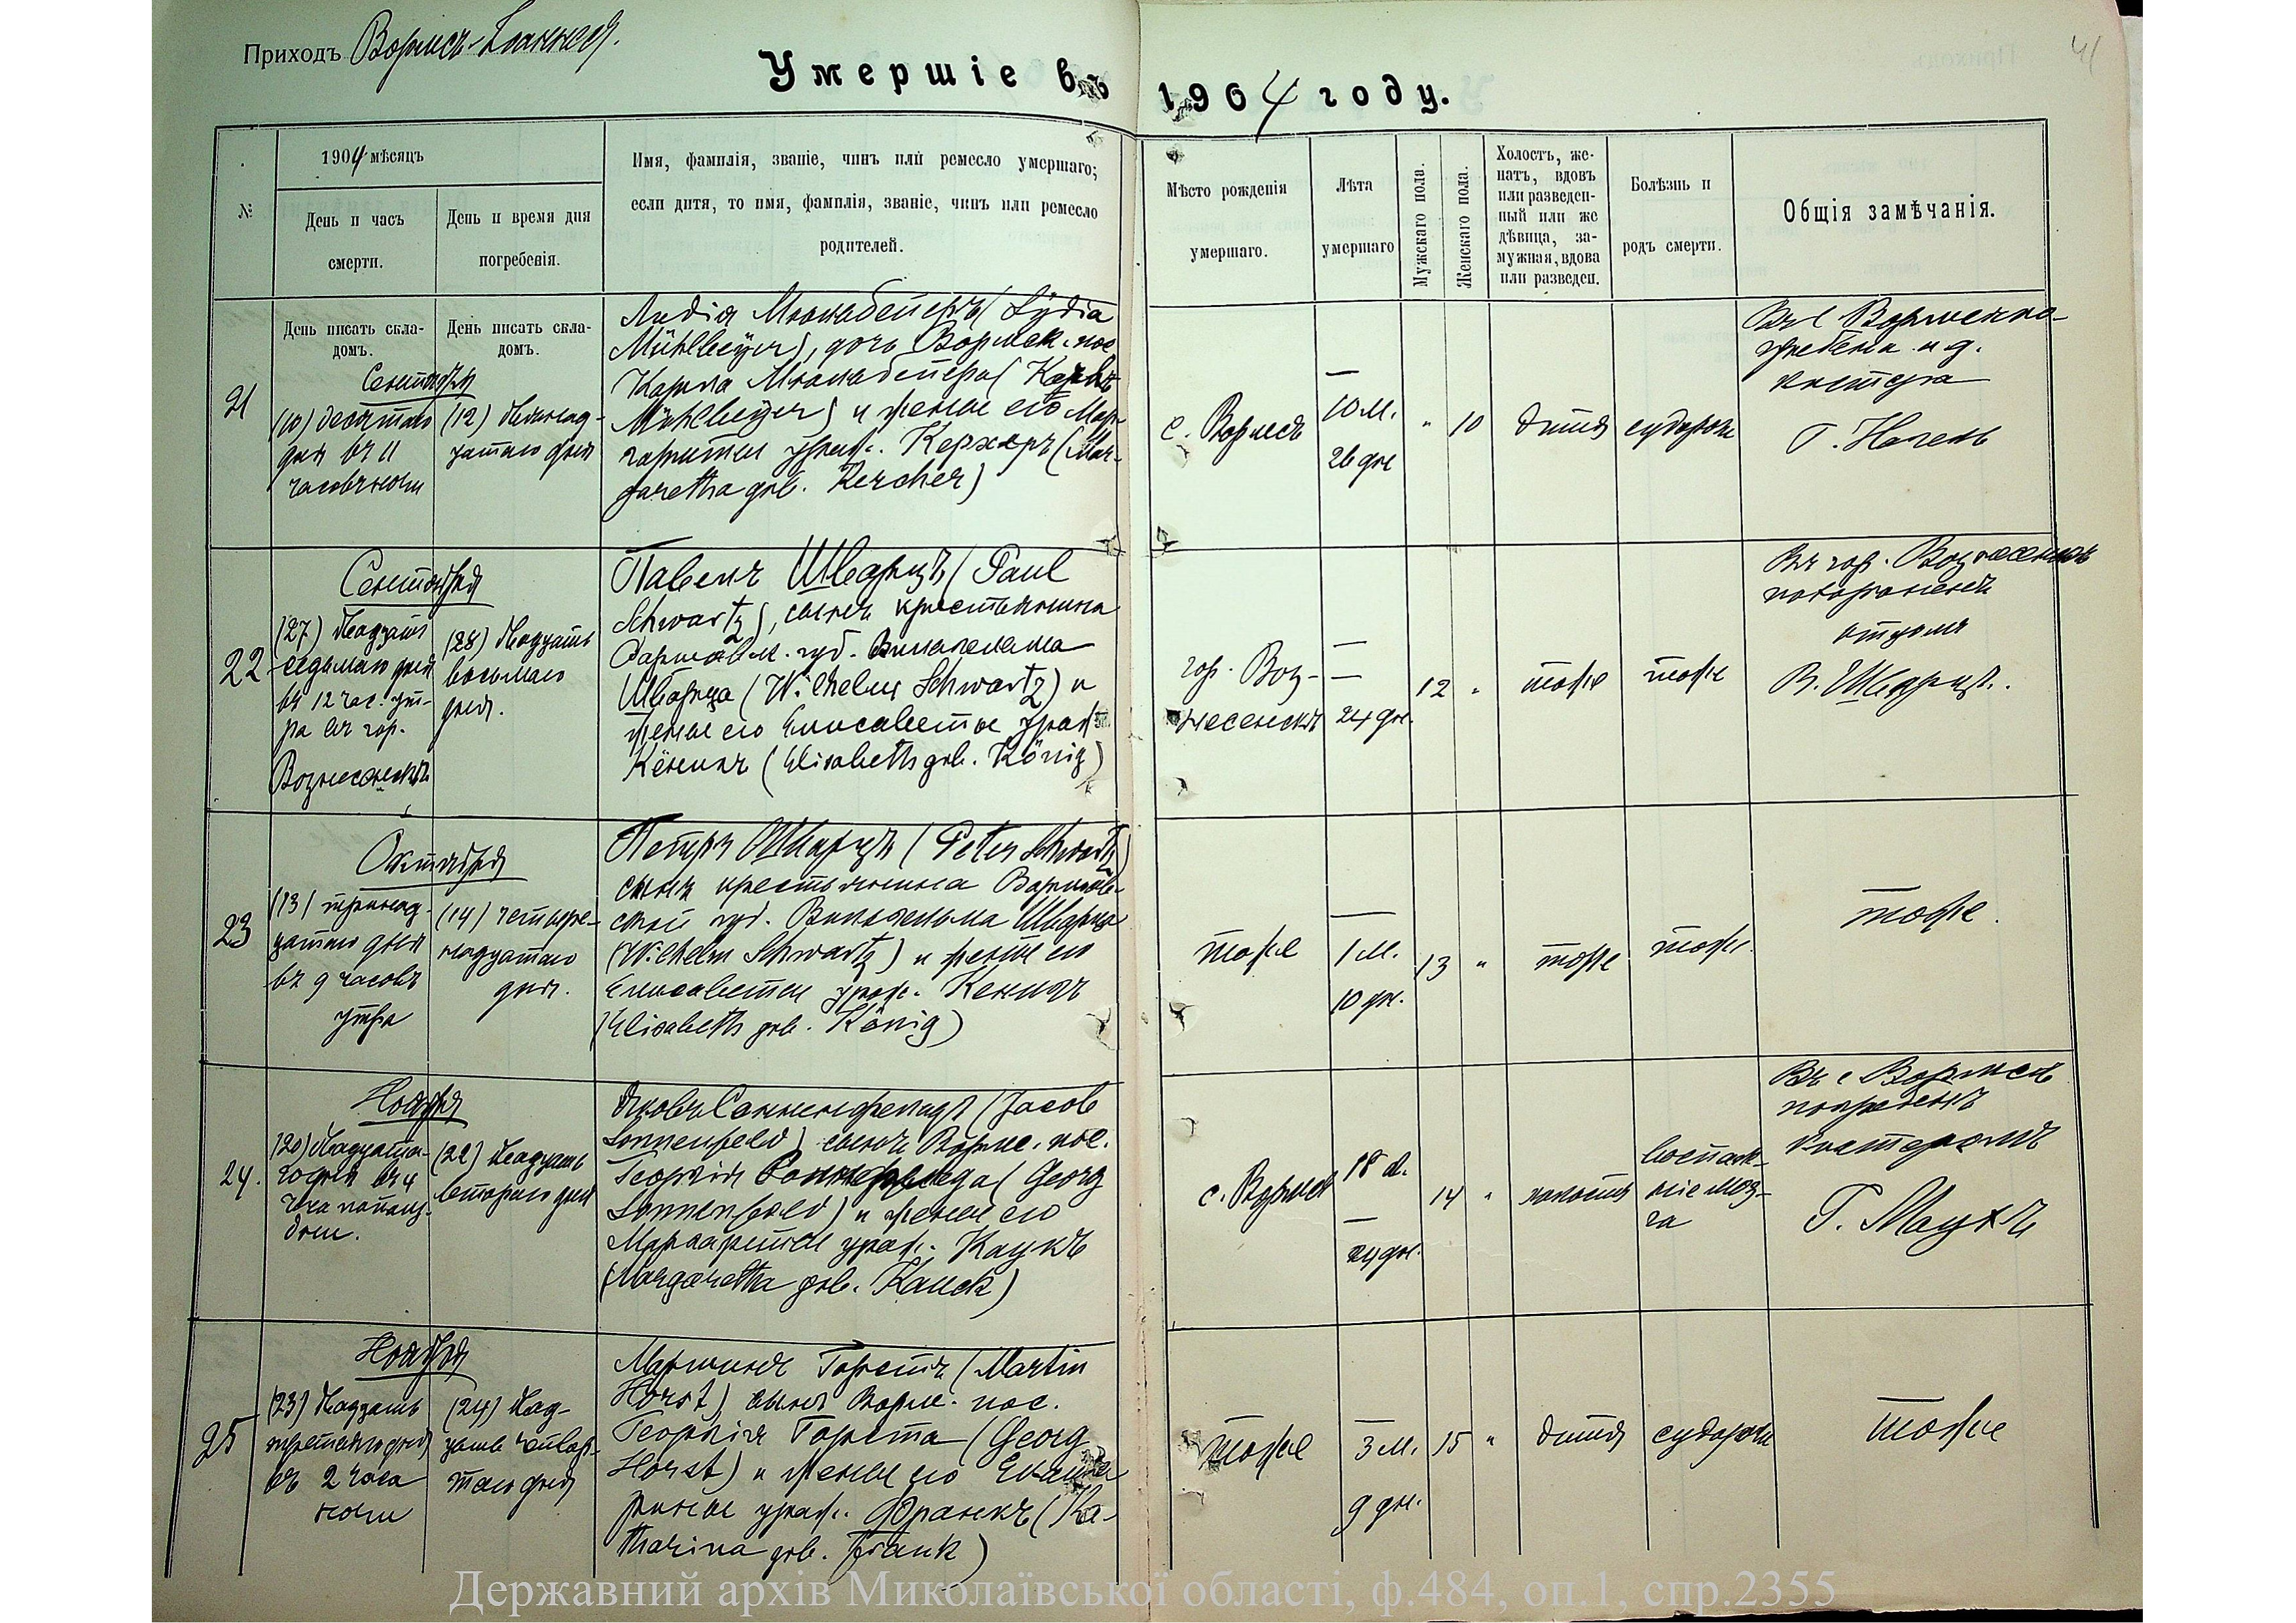 Приходъ Вормсъ-Іоаннея.
41
Умершіе въ 1904 году.
№
1904 мѣсяцъ
День и часъ
смерти.
День и время дня
погребенія.
Имя, фамилія, званіе, чинъ или ремесло умершаго;
если дитя, то имя, фамилія, званіе, чинъ или ремесло
родителей.
Мѣсто рожденія
умершаго.
Лѣта
умершаго
Мужскаго пола.
Женскаго пола.
Холостъ, же-
натъ, вдовъ
или разведен-
ный или же
дѣвица, за-
мужная, вдова
или разведен.
Болѣзнь и
родъ смерти.
Общія замѣчанія.
День писать скла-
домъ.
День писать скла-
домъ.
21
Сентября
(10) десятаго
дня въ 11
часовъ ночи
(12) двенад-
цатаго дня
Лидія Мюльбейеръ (Lydia
Mühlbeÿer), дочь Вормск. пос.
Карла Мюльбейера (Karl
Mühlbeÿer) и жены его Мар-
гариты урож. Керхеръ (Mar-
garetha geb. Kercher)
с. Вормсъ
—
10 м.
26 дн.
"
10
дитя
судороги
Въ с. Вормсъ по-
гребена и д.
кистера
Г. Нагель
22
Сентября
(27) двадцать
седьмаго дня
въ 12 час. ут-
ра въ гор.
Вознесенскъ
(28) двадцать
восьмаго
дня.
Павелъ Шварцъ (Paul
Schwartz), сынъ крестьянина
Варшавск. губ. Вильгельма
Шварца (Wilhelm Schwartz) и
жены его Елисаветы урож.
Кёнигъ (Elisabeth geb. König)
гор. Воз-
несенскъ
—
—
24 дн.
12
"
тоже
тоже
Въ гор. Вознесенскъ
похороненъ
отцомъ
В. Шварцъ.
23
Октября
(13) тринад-
цатаго дня
въ 9 часовъ
утра
(14) четыре-
надцатаго
дня.
Петръ Шварцъ (Peter Schwartz)
сынъ крестьянина Варшав-
ской губ. Вильгельма Шварца
(Wilhelm Schwartz) и жены его
Елисаветы урож. Кенигъ
(Elisabeth geb. König)
тоже
—
1 м.
10 дн.
13
"
тоже
тоже.
тоже.
24.
Ноября
(20) двадцата-
го дня въ 4
часа полу-
дни.
(22) двадцать
втораго дня
Яковъ Сонненфельдъ (Jacob
Sonnenfeld) сынъ Вормс. пос.
Георгія Сонненфельда (Georg
Sonnenfeld) и жены его
Маргариты урож. Каукъ
(Margaretha geb. Kauck)
с. Вормсъ
18 л.
—
24 дн.
14
"
холостъ
воспале-
ніе моз-
га
Въ с. Вормсъ
погребенъ
кистеромъ
Г. Маукъ
25
Ноября
(23) двадцать
третьяго дня
въ 2 часа
ночи
(24) двад-
цать четвер-
таго дня
Мартинъ Горстъ (Martin
Horst) сынъ Вормс. пос.
Георгія Горста (Georg
Horst) и жены его Екате-
рины урож. Франкъ (Ka-
tharina geb. Frank)
тоже
—
3 м.
9 дн.
15
"
дитя
судороги
тоже
Державний архів Миколаївської області, ф.484, оп.1, спр.2355